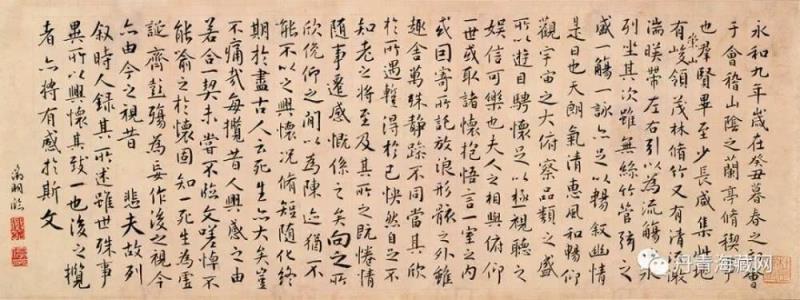 永和九年歲在癸丑暮春之初會
于會稽山陰之蘭亭脩稧事
也群賢畢至少長咸集此地
有崇山峻領茂林脩竹又有清流激
湍暎帶左右引以為流觴曲水
列坐其次雖無絲竹管弦之
盛一觴一詠亦足以暢敘幽情
是日也天朗氣清惠風和暢仰
觀宇宙之大俯察品類之盛
所以遊目騁懷足以極視聽之
娛信可樂也夫人之相與俯仰
一世或取諸懷抱悟言一室之內
或因寄所託放浪形骸之外雖
趣舍萬殊靜躁不同當其欣
於所遇蹔得於己怏然自足不
知老之將至及其所之既惓情
隨事遷感慨係之矣向之所
欣俛仰之間以為陳迹猶不
能不以之興懷況脩短隨化終
期於盡古人云死生亦大矣豈
不痛哉每攬昔人興感之由
若合一契未嘗不臨文嗟悼不
能喻之於懷固知一死生為虛
誕齊彭殤為妄作後之視今
亦由今之視昔 悲夫故列
敘時人錄其所述雖世殊事
異所以興懷其致一也後之攬
者亦將有感於斯文
徵明臨
丹青海藏网